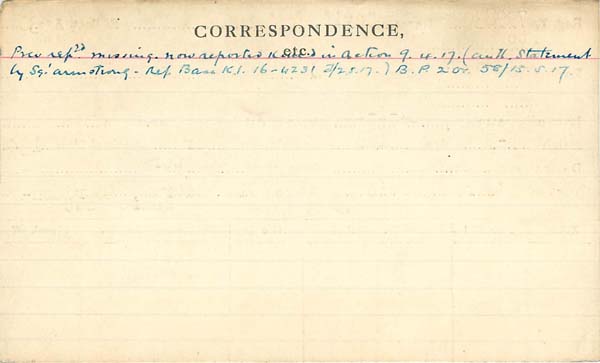 CORRESPONDENCE,
etc.
Prev repᵗᵈ missing. now reported Killed in action 9. 4. 17. (auth. Statement
by Sgᵗ armstrong - Ref. Base K.1. 16-4231 d/25.17.) B. P. 2 Or. 58/15. 5. 17.